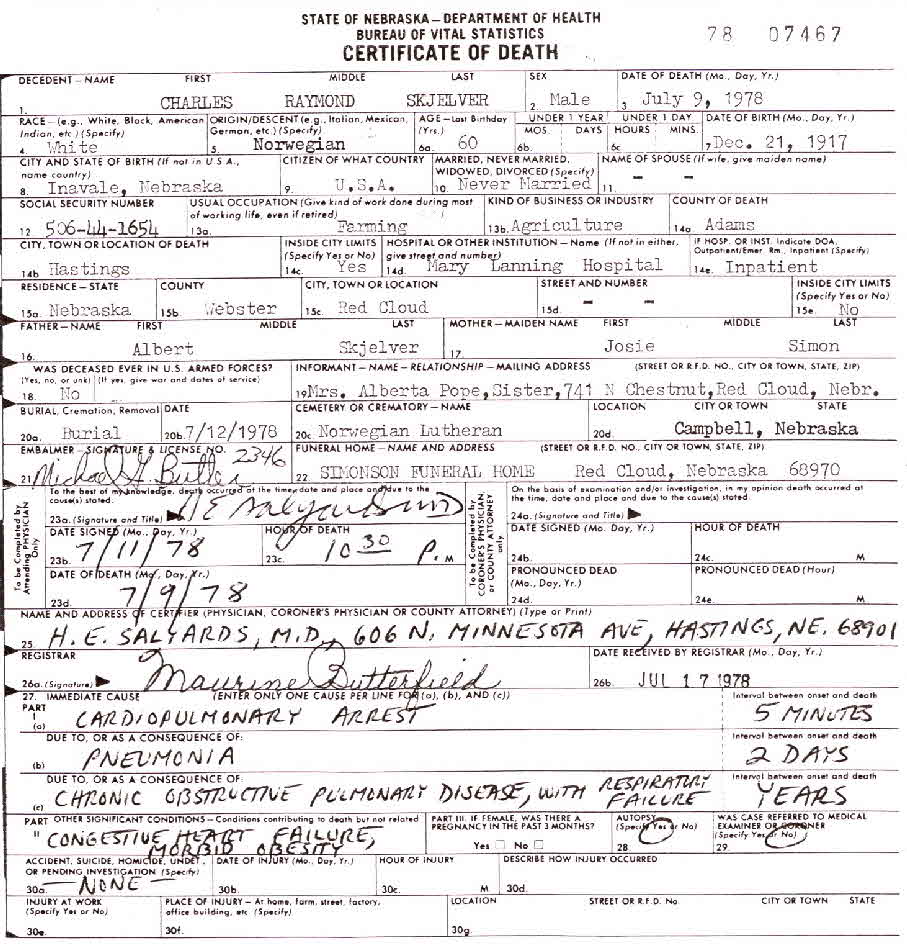 STATE OF NEBRASKA—DEPARTMENT OF HEALTH
BUREAU OF VITAL STATISTICS
CERTIFICATE OF DEATH
78 07467
DECEDENT—NAME FIRST MIDDLE LAST SEX DATE OF DEATH (Mo., Day, Yr.)
1. CHARLES RAYMOND SKJELVER 2. Male 3. July 9, 1978
RACE—(e.g., White, Black, American Indian, etc.) (Specify) ORIGIN/DESCENT (e.g., Italian, Mexican, German, etc.) (Specify) AGE—Last Birthday (Yrs.) UNDER 1 YEAR MOS. DAYS UNDER 1 DAY HOURS MINS. DATE OF BIRTH (Mo., Day, Yr.)
4. White 5. Norwegian 6a. 60 6b. 6c 7 Dec. 21, 1917
CITY AND STATE OF BIRTH (If not in U.S.A., name country) CITIZEN OF WHAT COUNTRY MARRIED, NEVER MARRIED, WIDOWED, DIVORCED (Specify) NAME OF SPOUSE (If wife, give maiden name)
8. Inavale, Nebraska 9. U.S.A. 10. Never Married 11. – –
SOCIAL SECURITY NUMBER USUAL OCCUPATION (Give kind of work done during most of working life, even if retired) KIND OF BUSINESS OR INDUSTRY COUNTY OF DEATH
12 506-44-1654 13a. Farming 13b. Agriculture 14a. Adams
CITY, TOWN OR LOCATION OF DEATH INSIDE CITY LIMITS (Specify Yes or No) HOSPITAL OR OTHER INSTITUTION—Name (If not in either, give street and number) IF HOSP. OR INST. Indicate DOA, Outpatient/Emer. Rm., Inpatient (Specify)
14b Hastings 14c. Yes 14d. Mary Lanning Hospital 14e. Inpatient
RESIDENCE—STATE COUNTY CITY, TOWN OR LOCATION STREET AND NUMBER INSIDE CITY LIMITS (Specify Yes or No)
15a. Nebraska 15b. Webster 15c. Red Cloud 15d. – – 15e. No
FATHER—NAME FIRST MIDDLE LAST MOTHER—MAIDEN NAME FIRST MIDDLE LAST
16. Albert Skjelver 17. Josie Simon
WAS DECEASED EVER IN U.S. ARMED FORCES? (Yes, no, or unk) (If yes, give war and dates of service) INFORMANT—NAME—RELATIONSHIP—MAILING ADDRESS (STREET OR R.F.D. NO., CITY OR TOWN, STATE, ZIP)
18. No 19 Mrs. Alberta Pope, Sister, 741 N Chestnut, Red Cloud, Nebr.
BURIAL, Cremation, Removal DATE CEMETERY OR CREMATORY—NAME LOCATION CITY OR TOWN STATE
20a. Burial 20b. 7/12/1978 20c Norwegian Lutheran 20d. Campbell, Nebraska
EMBALMER—SIGNATURE & LICENSE NO. 2346 FUNERAL HOME—NAME AND ADDRESS (STREET OR R.F.D. NO., CITY OR TOWN, STATE, ZIP)
21. Michael G. Butler 22. SIMONSON FUNERAL HOME Red Cloud, Nebraska 68970
To be Completed by Attending PHYSICIAN Only
To the best of my knowledge, death occurred at the time, date and place and due to the cause(s) stated.
23a. (Signature and Title) H E Salyards MD
DATE SIGNED (Mo., Day, Yr.) HOUR OF DEATH
23b. 7/11/78 23c. 10 30 P. M
DATE OF DEATH (Mo., Day, Yr.)
23d. 7/9/78
To be Completed by CORONER'S PHYSICIAN, or COUNTY ATTORNEY only
On the basis of examination and/or investigation, in my opinion death occurred at the time, date and place and due to the cause(s) stated.
24a. (Signature and Title)
DATE SIGNED (Mo., Day, Yr.) HOUR OF DEATH
24b. 24c. M
PRONOUNCED DEAD (Mo., Day, Yr.) PRONOUNCED DEAD (Hour)
24d. 24e. M
NAME AND ADDRESS OF CERTIFIER (PHYSICIAN, CORONER'S PHYSICIAN OR COUNTY ATTORNEY) (Type or Print)
25. H. E. SALYARDS, M.D., 606 N. MINNESOTA AVE, HASTINGS, NE. 68901
REGISTRAR DATE RECEIVED BY REGISTRAR (Mo., Day, Yr.)
26a. (Signature) Maurine Butterfield 26b. JUL 17 1978
27. IMMEDIATE CAUSE (ENTER ONLY ONE CAUSE PER LINE FOR (a), (b), AND (c)) Interval between onset and death
PART I (a) CARDIOPULMONARY ARREST 5 MINUTES
DUE TO, OR AS A CONSEQUENCE OF: Interval between onset and death
(b) PNEUMONIA 2 DAYS
DUE TO, OR AS A CONSEQUENCE OF: Interval between onset and death
(c) CHRONIC OBSTRUCTIVE PULMONARY DISEASE, WITH RESPIRATORY FAILURE YEARS
PART II OTHER SIGNIFICANT CONDITIONS—Conditions contributing to death but not related PART III. IF FEMALE, WAS THERE A PREGNANCY IN THE PAST 3 MONTHS? AUTOPSY (Specify Yes or No) WAS CASE REFERRED TO MEDICAL EXAMINER OR CORONER (Specify Yes or No)
CONGESTIVE HEART FAILURE, MORBID OBESITY Yes No 28. 29.
ACCIDENT, SUICIDE, HOMICIDE, UNDET., OR PENDING INVESTIGATION (Specify) DATE OF INJURY (Mo., Day, Yr.) HOUR OF INJURY DESCRIBE HOW INJURY OCCURRED
30a. —NONE— 30b. 30c. M 30d.
INJURY AT WORK (Specify Yes or No) PLACE OF INJURY—At home, farm, street, factory, office building, etc. (Specify) LOCATION STREET OR R.F.D. No. CITY OR TOWN STATE
30e. 30f. 30g.